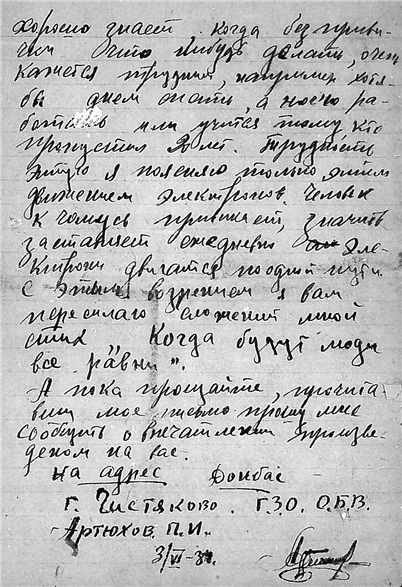 хорошо знает, когда без привы-
чки что нибудь делать, очень
кажется трудным, например хотя-
бы днем спать, а ночью ра-
ботать или учится тому кто
пропустил 2 лет. Трудность
этую я поясняю только этим
движением электронов. Человек
к чемусь привыкает, значить
заставляет ежедневно эле-
ктроны двигатся по одной пути
с этим воззрением я вам
пересылаю сложений мной
стих „Когда будут люди
все равни".
А пока прощайте, прочита
вши мое письмо прошу мне
сообщить о впечатлении произве-
деном на вас.
на адрес Донбас
г. Чистяково. Г.З.О. О.Б.В.
Артюхов. П.И.
3/VI-37.